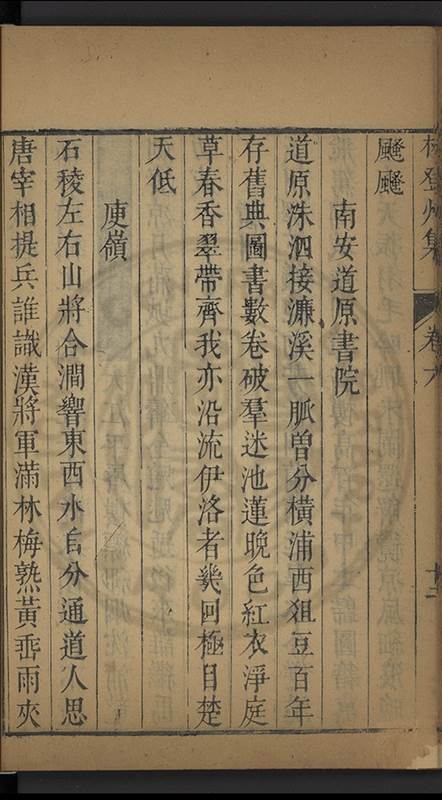 颼颼
南安道原書院
道原洙泗接濂溪一脈曾分橫浦西俎豆百年
存舊典圖書數卷破羣迷池蓮晚色紅衣淨庭
草春香翠帶齊我亦沿流伊洛者幾回極目楚
天低
庾嶺
石稜左右山將合澗響東西水自分通道人思
唐宰相提兵誰識漢將軍滿林梅熟黃垂雨夾